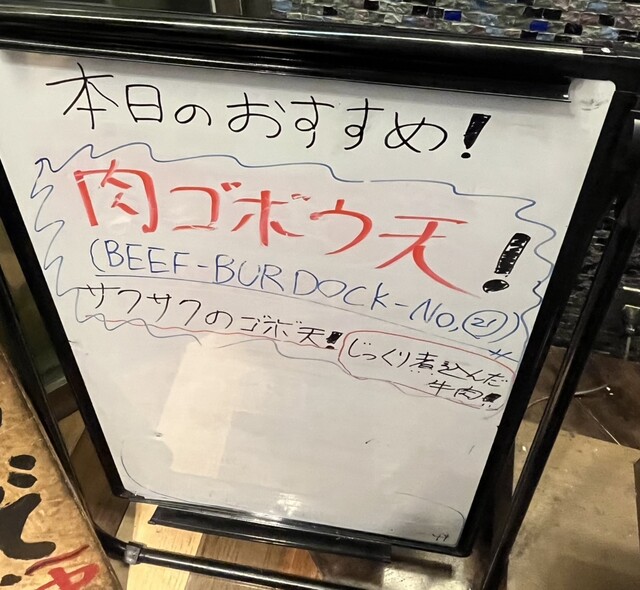 本日のおすすめ!
肉ゴボウ天!
(BEEF-BURDOCK-No,㉑)
サクサクのゴボ天!
じっくり煮込んだ
牛肉!